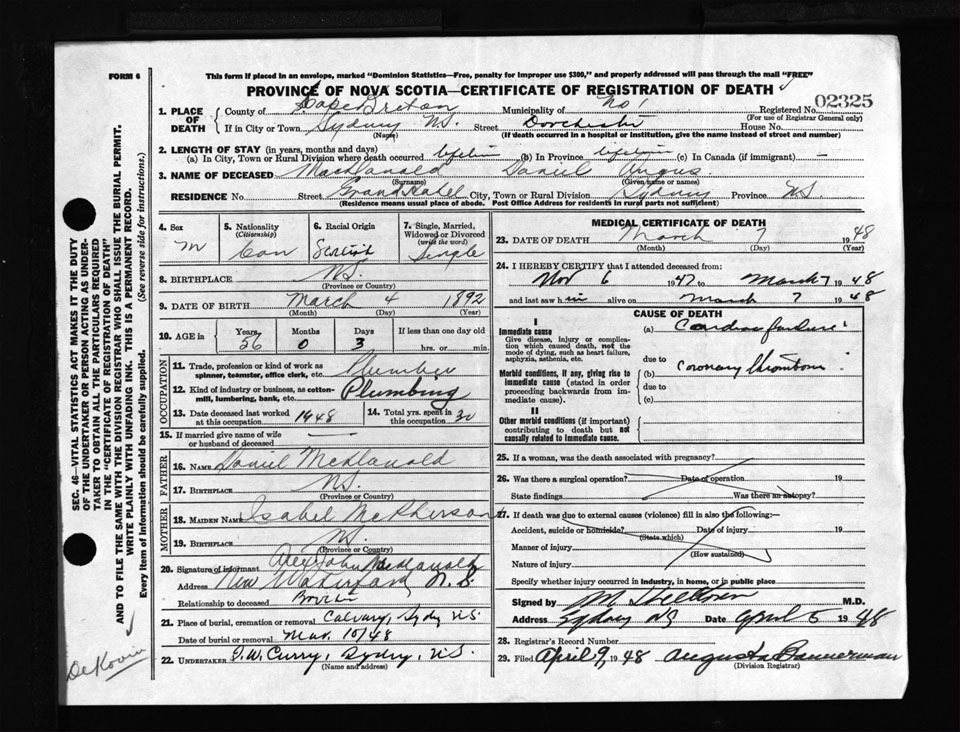 FORM 6
This form if placed in an envelope, marked "Dominion Statistics—Free, penalty for improper use $300," and properly addressed will pass through the mail "FREE"
PROVINCE OF NOVA SCOTIA—CERTIFICATE OF REGISTRATION OF DEATH
1. PLACE OF DEATH County of Cape Breton Municipality of No 1 Registered No. 02325
(For use of Registrar General only)
If in City or Town Sydney N.S. Street Dorchester House No.
(Name) (If death occurred in a hospital or institution, give the name instead of street and number)
2. LENGTH OF STAY (in years, months and days)
(a) In City, Town or Rural Division where death occurred lifetime (b) In Province lifetime (c) In Canada (if immigrant) –
3. NAME OF DECEASED MacDonald Daniel Angus
(Surname) (Given name or names)
RESIDENCE No. Street Grand Hotel City, Town or Rural Division Sydney Province N.S.
(Residence means usual place of abode. Post Office Address for residents in rural parts not sufficient)
4. Sex 5. Nationality (Citizenship) 6. Racial Origin 7. Single, Married, Widowed or Divorced (write the word)
M Can Scotish Single
8. BIRTHPLACE N.S.
(Province or Country)
9. DATE OF BIRTH March 4 1892
(Month) (Day) (Year)
10. AGE in Years Months Days If less than one day old
56 0 3 hrs. or min.
OCCUPATION
11. Trade, profession or kind of work as spinner, teamster, office clerk, etc. Plumber
12. Kind of industry or business, as cotton-mill, lumbering, bank, etc. Plumbing
13. Date deceased last worked at this occupation 1948 14. Total yrs. spent in this occupation 30
15. If married give name of wife or husband of deceased —
FATHER
16. NAME Daniel McDonald
17. BIRTHPLACE N.S.
(Province or Country)
MOTHER
18. MAIDEN NAME Isabel McPherson
19. BIRTHPLACE N.S.
(Province or Country)
20. Signature of informant Alex John MacDonald
Address New Waterford N.S.
Relationship to deceased Brother
21. Place of burial, cremation or removal Calvary, Sydney N.S.
Date of burial or removal Mar. 10/48
22. UNDERTAKER T.W. Curry, Sydney, N.S.
(Name and address)
MEDICAL CERTIFICATE OF DEATH
23. DATE OF DEATH March 7 1948
(Month) (Day) (Year)
24. I HEREBY CERTIFY that I attended deceased from:
Nov 6 1947 to March 7 1948
and last saw him alive on March 7 1948
CAUSE OF DEATH
I
Immediate cause (a) Cardiac failure
Give disease, injury or complication which caused death, not the mode of dying, such as heart failure, asphyxia, asthenia, etc.
due to
Morbid conditions, if any, giving rise to immediate cause (stated in order proceeding backwards from immediate cause).
(b) Coronary thrombosis
due to
(c)
II
Other morbid conditions (if important) contributing to death but not causally related to immediate cause.
25. If a woman, was the death associated with pregnancy?
26. Was there a surgical operation? Date of operation 19
State findings Was there an autopsy?
27. If death was due to external causes (violence) fill in also the following:—
Accident, suicide or homicide? Date of injury 19
(State which)
Manner of injury
(How sustained)
Nature of injury
Specify whether injury occurred in industry, in home, or in public place
Signed by M. M.D.
Address Sydney NS Date April 5 1948
28. Registrar's Record Number
29. Filed April 9, 1948 Augusta Bannerman
(Division Registrar)
SEC. 46—VITAL STATISTICS ACT MAKES IT THE DUTY
OF THE UNDERTAKER OR PERSON ACTING AS UNDERTAKER TO OBTAIN ALL THE PARTICULARS REQUIRED
IN THE "CERTIFICATE OF REGISTRATION OF DEATH"
AND TO FILE THE SAME WITH THE DIVISION REGISTRAR WHO SHALL ISSUE THE BURIAL PERMIT.
WRITE PLAINLY WITH UNFADING INK. THIS IS A PERMANENT RECORD.
Every item of information should be carefully supplied. (See reverse side for instructions.)